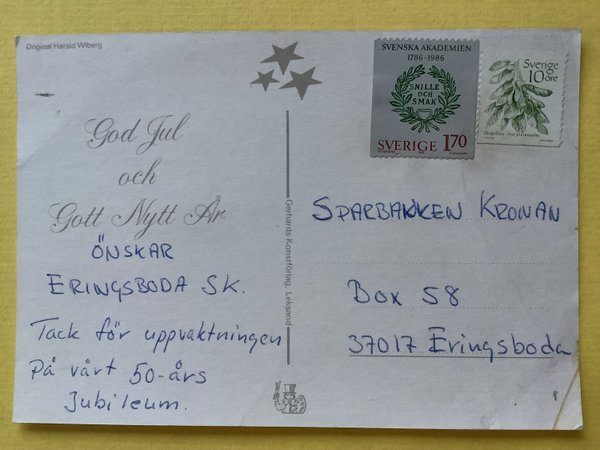 Original Harald Wiberg
God Jul
och
Gott Nytt År
ÖNSKAR
ERINGSBODA SK.
Tack för uppvaktningen
På vårt 50-års
Jubileum.
Gerhards Konstförlag, Leksand
SVENSKA AKADEMIEN
1786-1986
SNILLE
OCH
SMAK
SVERIGE 170
Sverige
10 öre
SPARBANKEN KRONAN
Box 58
37017 Eringsboda